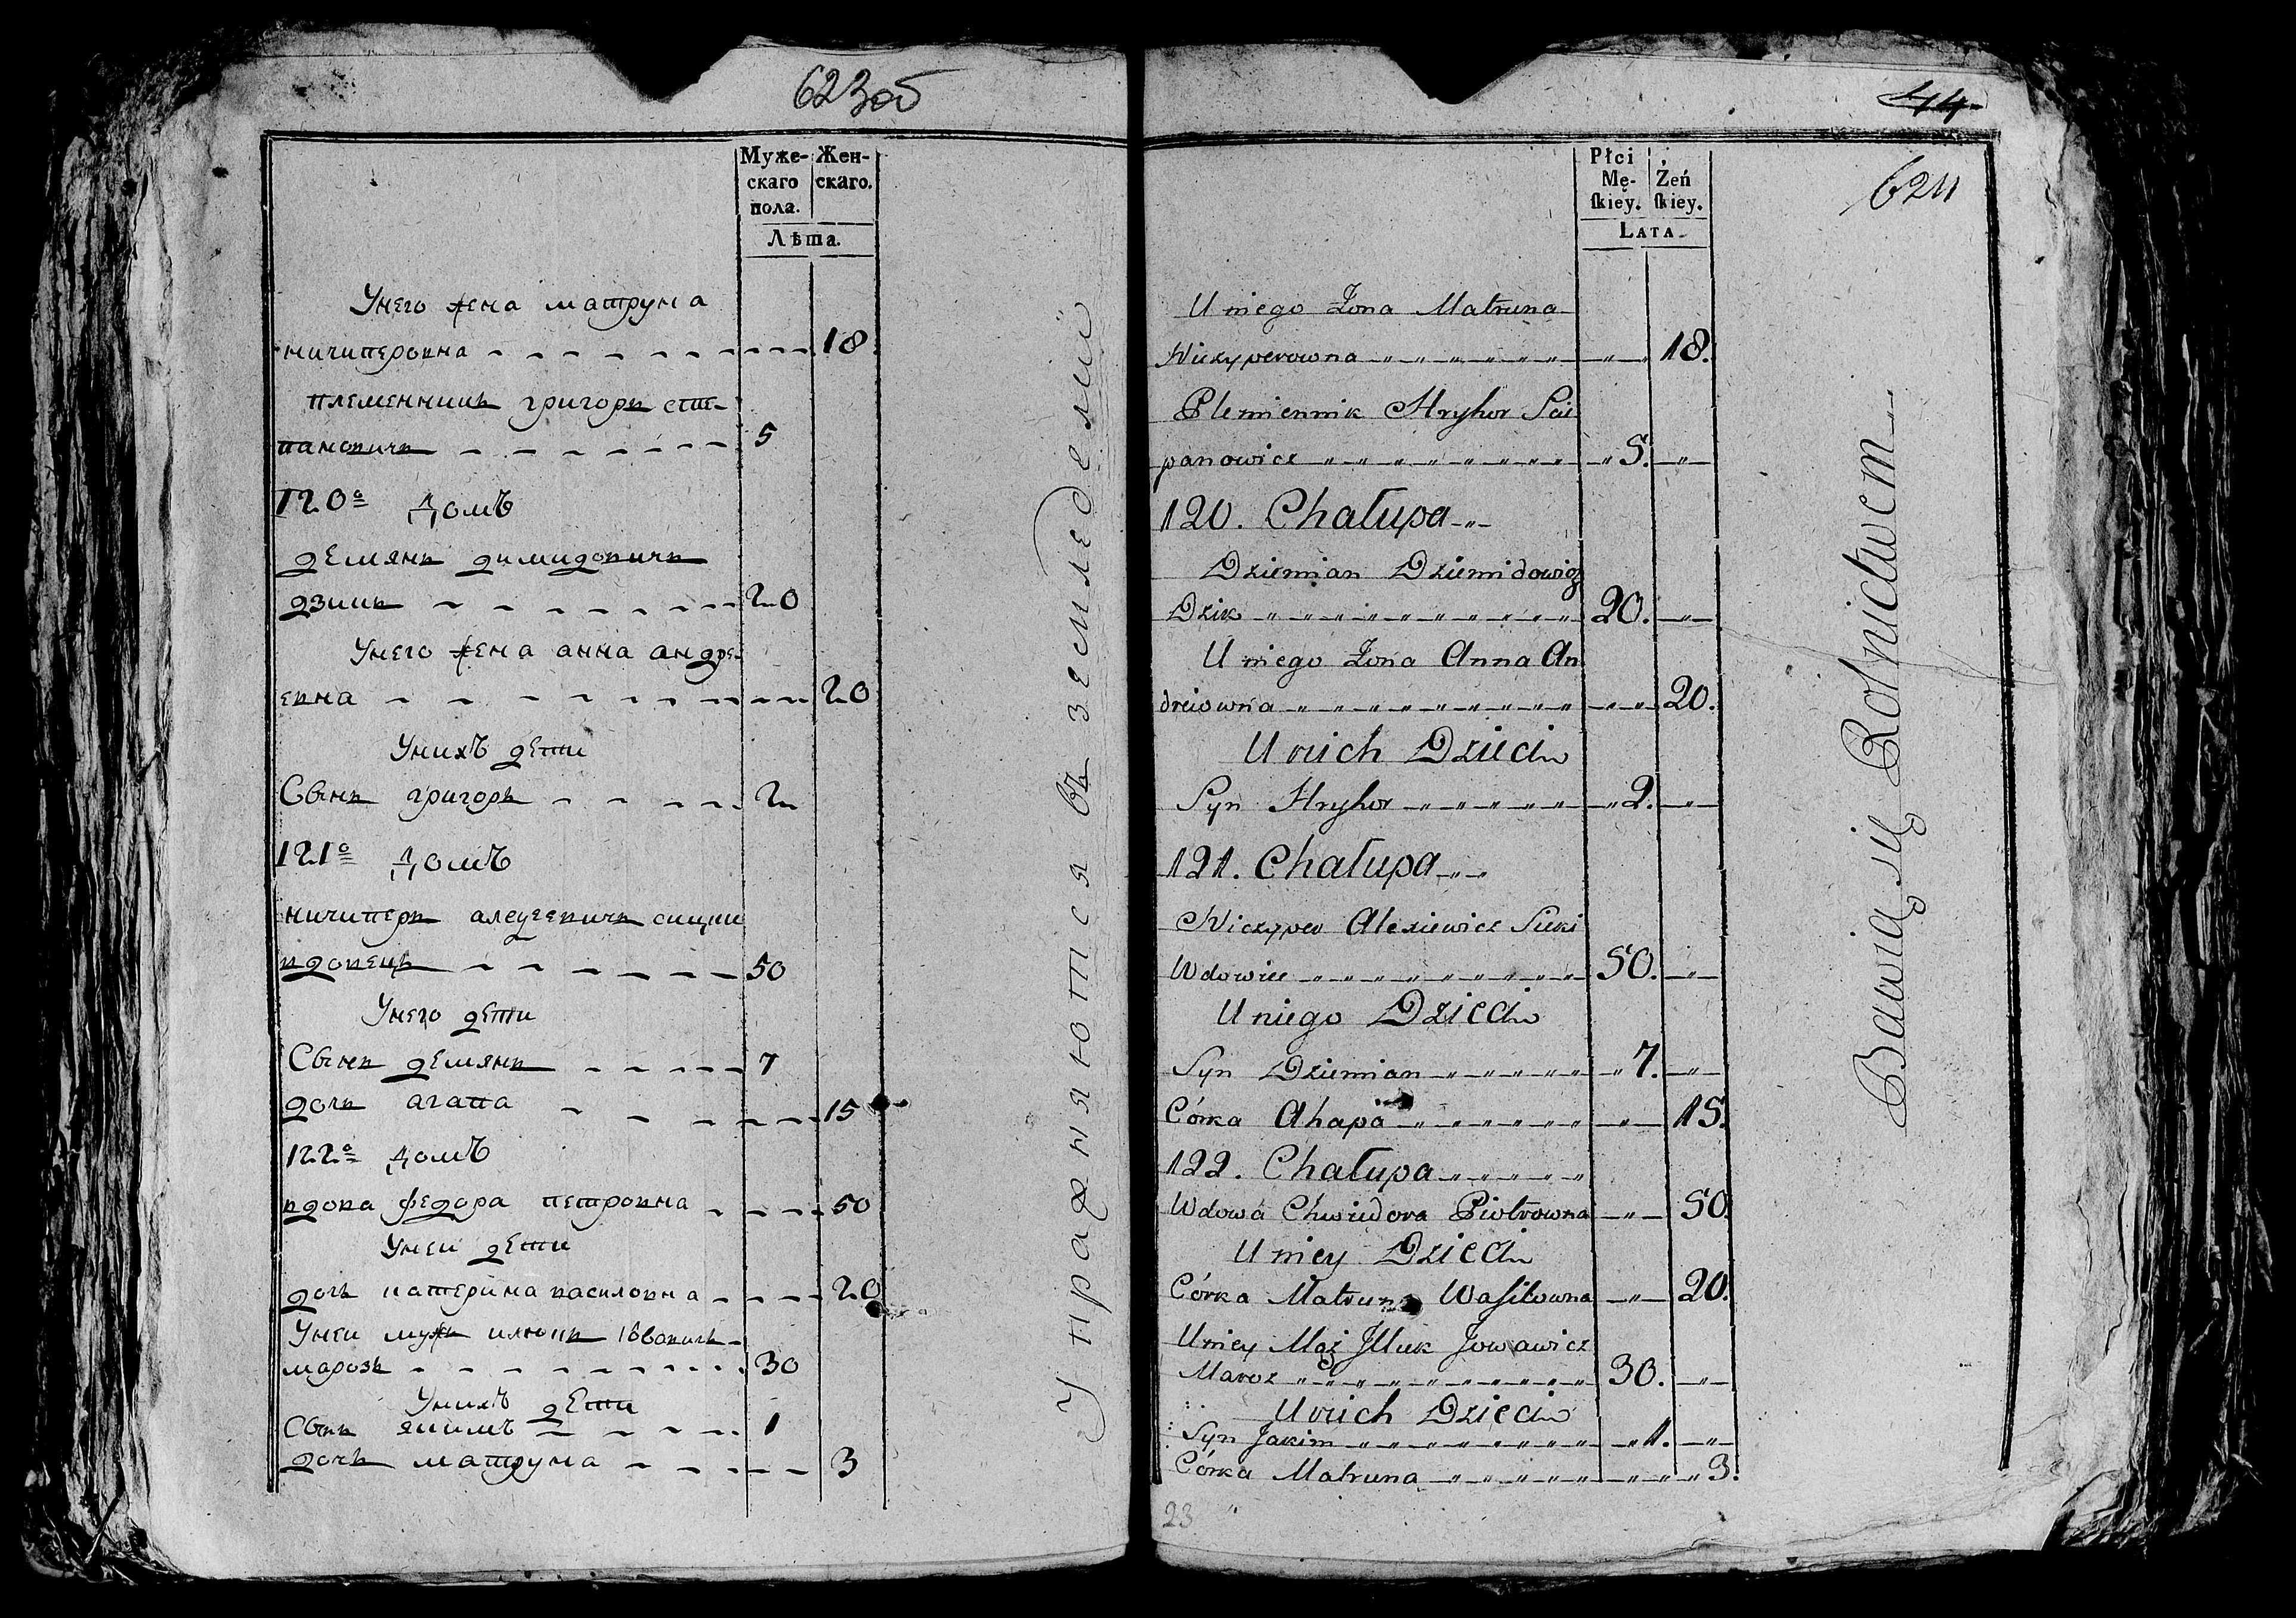 623об
Муже- Жен-
скаго скаго.
пола.
Лѣта.
Унего жена матруна
ничиперовна 18
племенникъ григори сте-
пановичъ 5
120º домъ
демянъ димидовичъ
дзикъ 20
Унего жена анна андре
евна 20
Унихъ дети
Сынъ григоръ 2
121º домъ
ничиперъ алецеевичъ сицки
вдовецъ 50
Унего дети
Сынъ демянъ 7
дочъ агапа 15
122º домъ
вдова федора петровна 50
Унеи дети
дочъ катерина василовна 20
Унеи мужъ илюкъ івовичъ
марозъ 30
Унихъ дети
Сынъ якимъ 1
дочъ матруна 3
Упражняются въ земледелии
44
624
Płci Żeń
Mę- skiey.
skiey.
LATA
U niego Żona Matruna
Niczyperowna 18.
Plemiennik Hryhor Scie
panowicz 5.
120. Chałupa
Dziemian Dziemidowicz
Dzik 20.
U niego Żona Anna An
dreiowna 20.
U nich Dzieci
Syn Hryhor 2.
121. Chałupa
Niczyper Alexiewicz Sicki
Wdowiec 50.
U niego Dzieci
Syn Dziemian 7.
Córka Ahapa 15.
122. Chałupa
Wdowa Chwiedora Piotrowna 50.
U niey Dzieci
Córka Matruna Wasilowna 20.
U niey Mąż Illuk Jowawicz
Maroz 30.
U nich Dzieci
Syn Jakim 1.
Córka Matruna 3.
Bawią się Rolnictwem
23